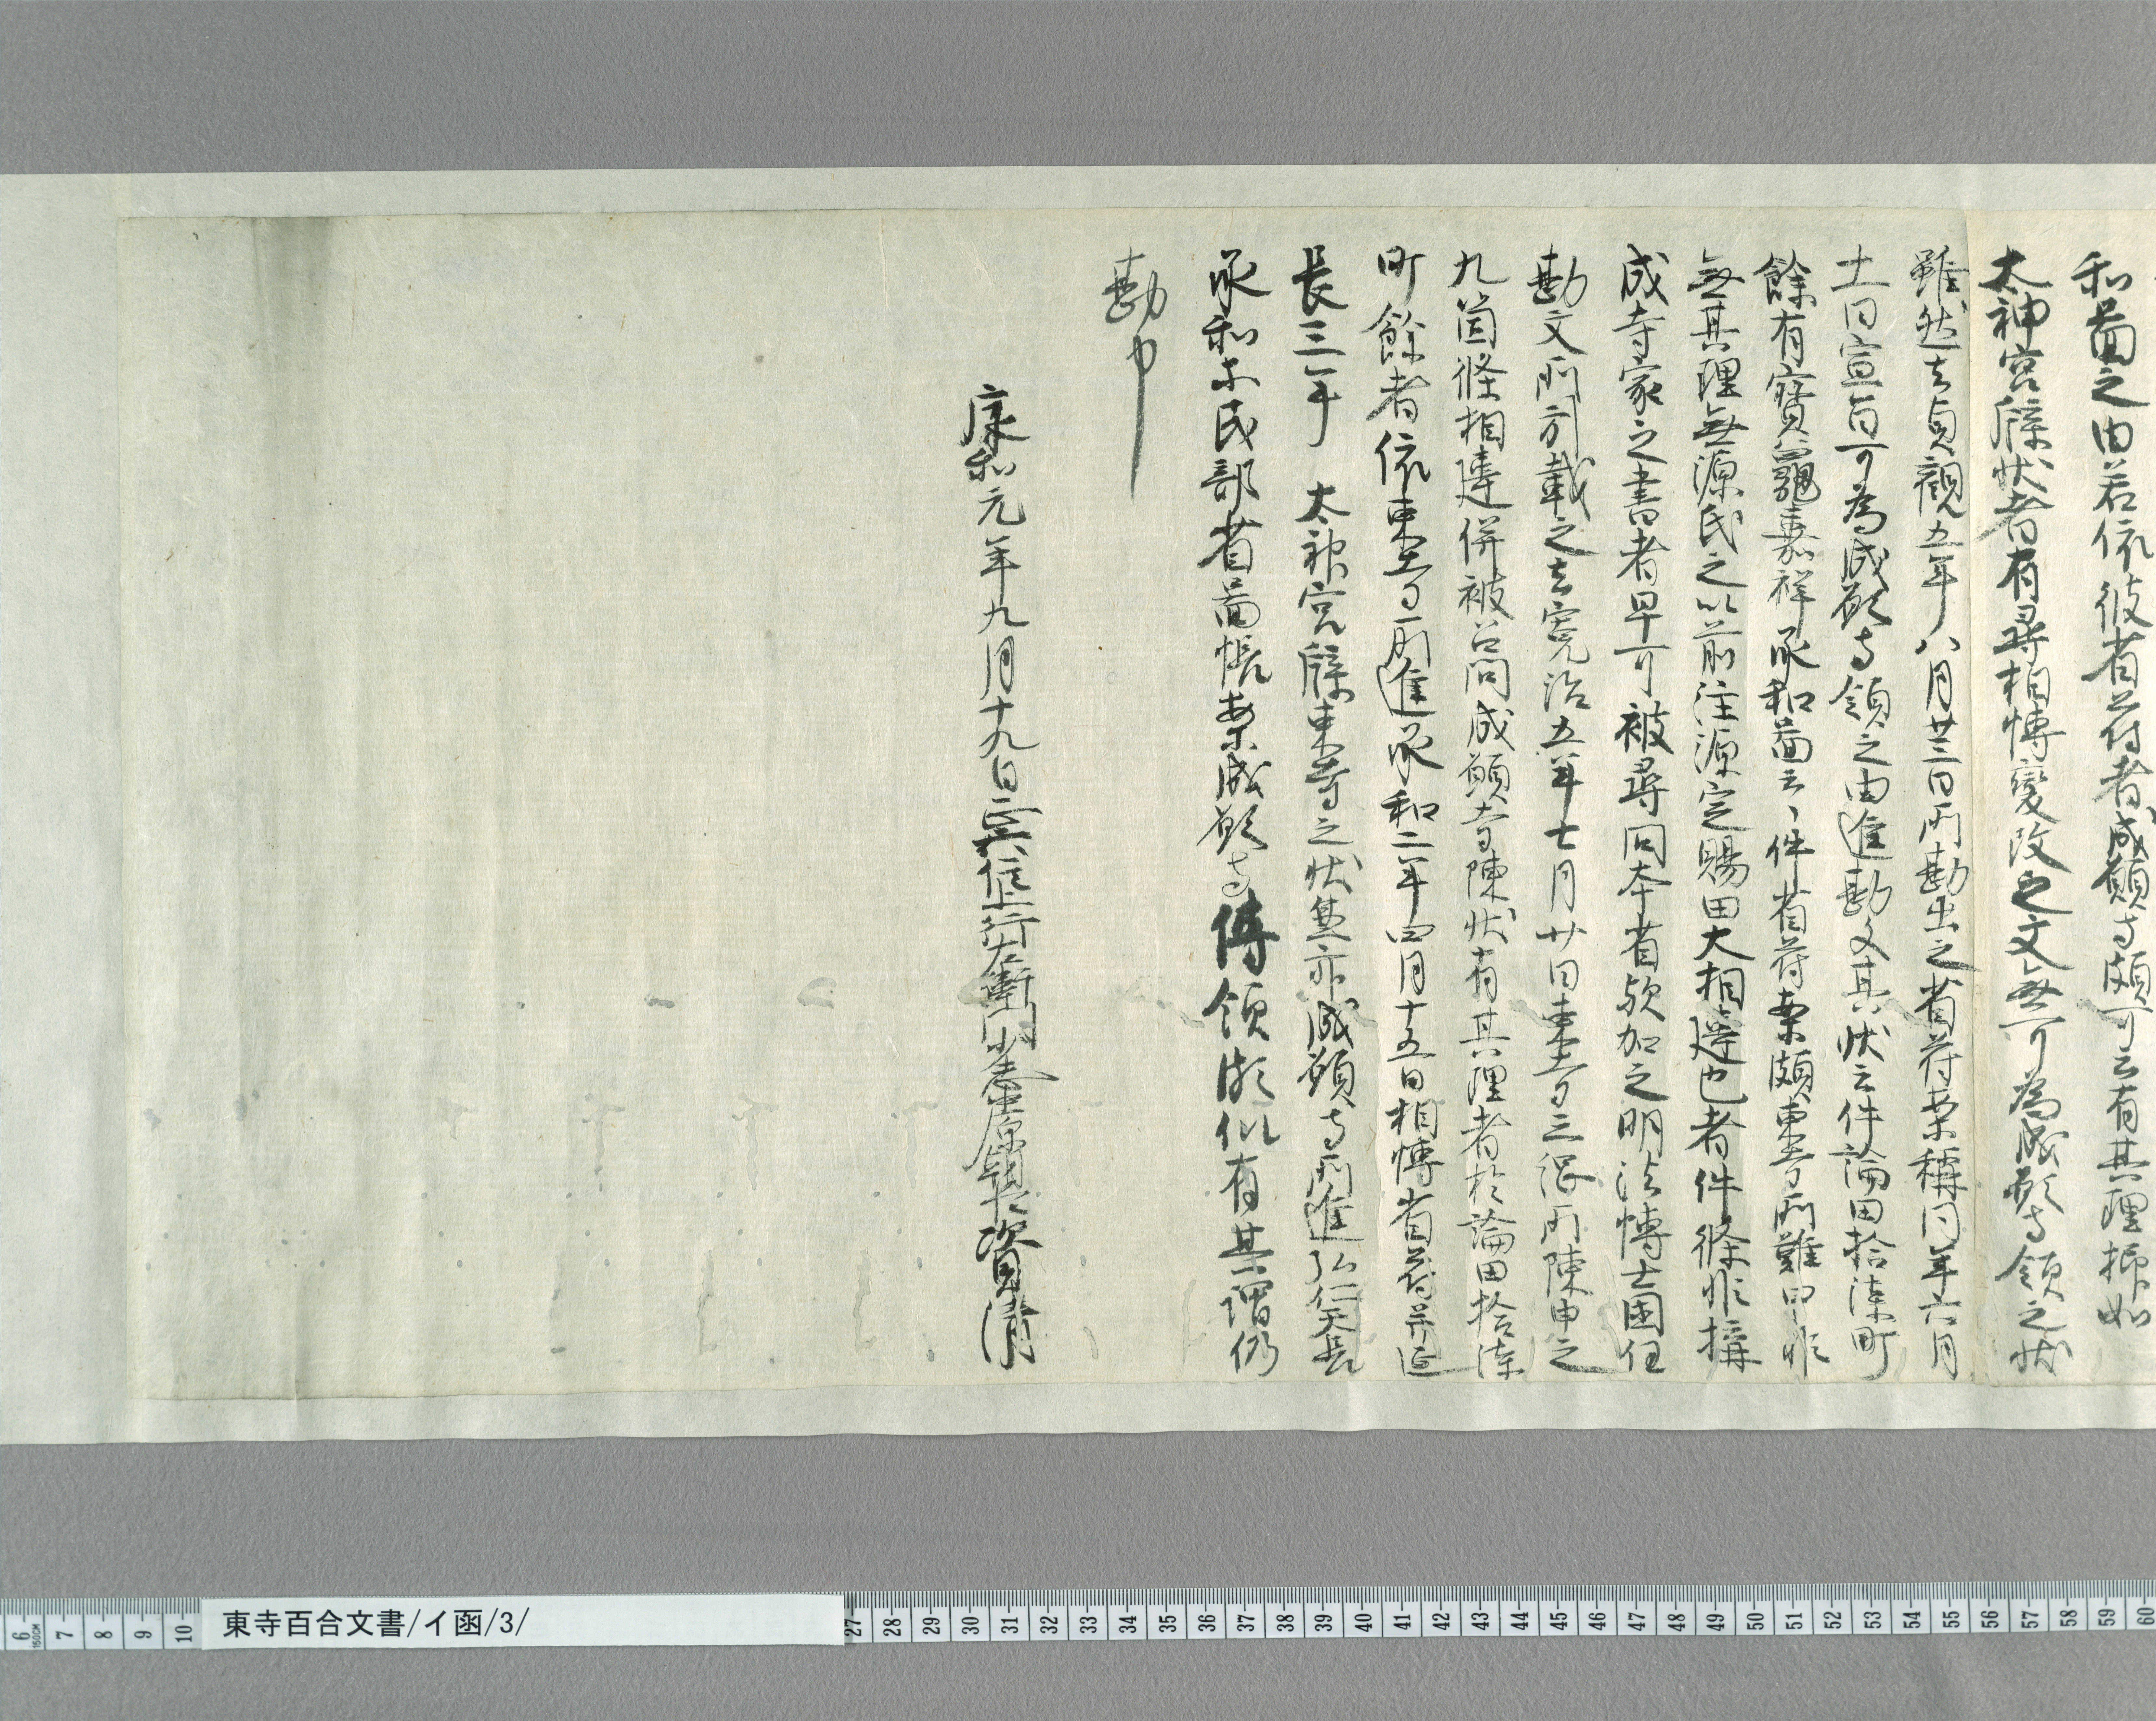 和啚之由若依彼省苻者成願寺頗可云有其理抑如
太神宮牒状者有尋相博變改之文無可為成願寺領之状
雖然去貞觀五年八月廿三日所勘出之省苻案稱同年六月
十一日宣旨可為成願寺領之由進勘文其状云件論田拾漆町
餘有寶龜嘉祥承和啚云々件省苻案頗東寺所難申非
無其理無源氏之以前注源定賜田大相違也者件條非搆
成寺家之書者早可被尋問本省歟加之明法博士國任
勘文所引載之去寛治五年七月廿日東寺三綱所陳申之
九箇條相違併被召問成願寺陳状有其理者於論田拾漆
町餘者依東寺所進承和二年四月十五日相博省苻并延
長三年 太神宮牒東寺之状其亦成願寺所進弘仁天長
承和等民部省啚帳案成願寺傳領頗似有其謂仍
勘申
康和元年九月十九日正六位上行左衛門少志中原朝臣資清
東寺百合文書/イ函/3/
6 7 8 9 10 27 28 29 30 31 32 33 34 35 36 37 38 39 40 41 42 43 44 45 46 47 48 49 50 51 52 53 54 55 56 57 58 59 60
150CM